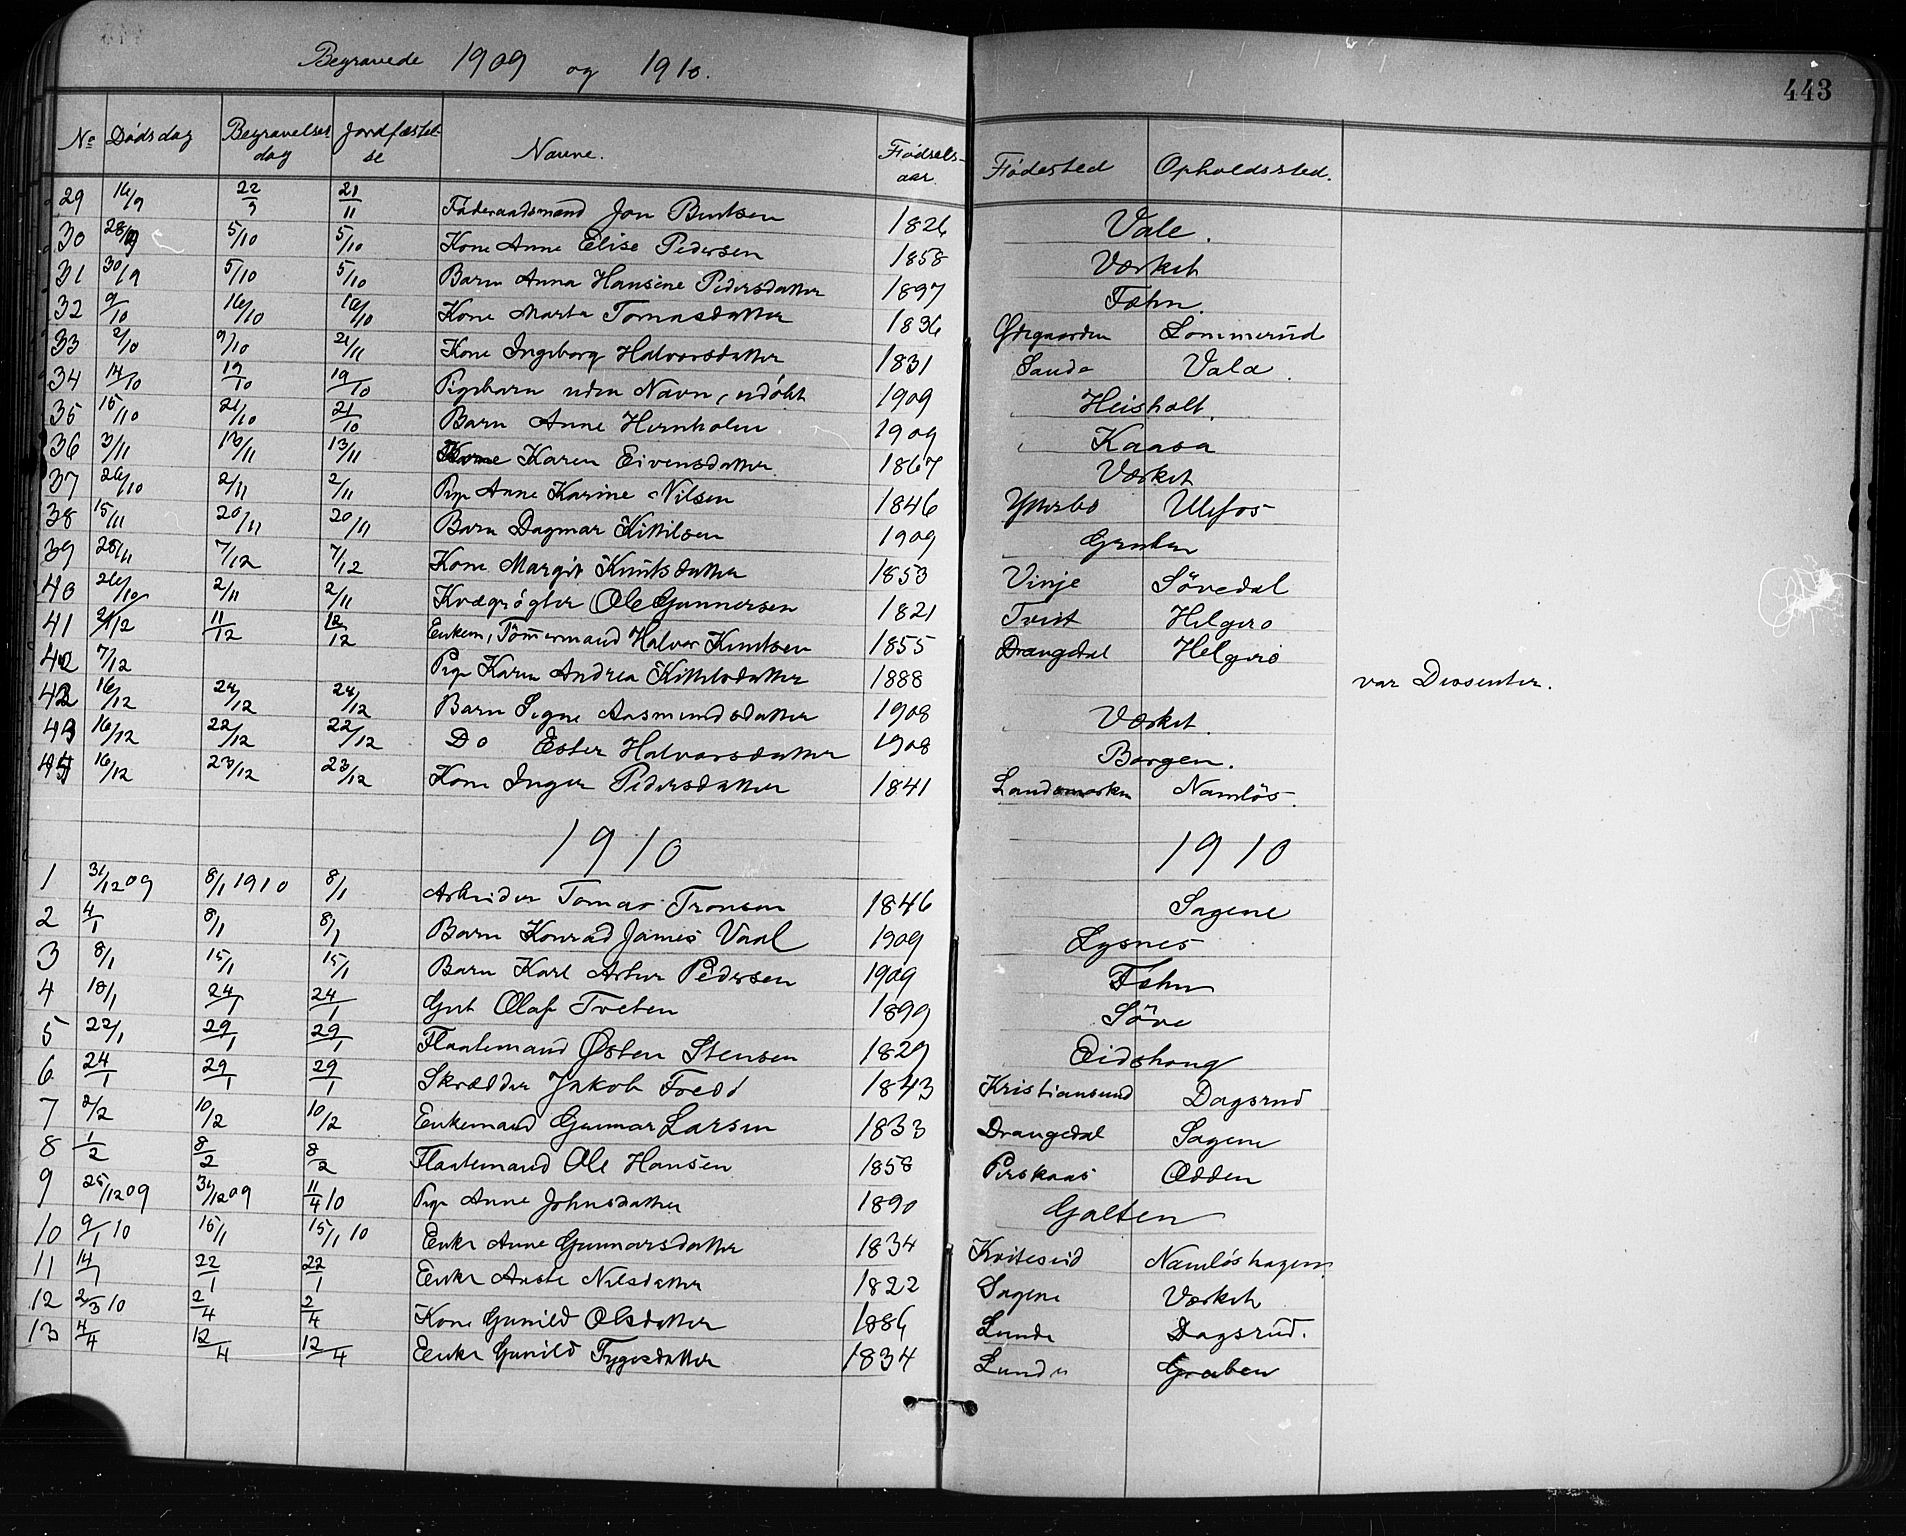 Begravede 1909 og 1910.
443
No Dødsdag Begravelses dag Jordfæstelse Navne. Fødselsaar. Fødested Opholdssted.
29 16/9 22/9 21/11 Føderaadsmand Jon Bentsen 1826 Vale.
30 28/9 5/10 5/10 Kone Anne Elise Pedersen 1858 Værket
31 30/9 5/10 5/10 Barn Anna Hansine Pedersdatter 1897 Fæhn
32 9/10 16/10 16/10 Kone Marta Tomasdatter 1836 Ødegaarden Lommerud
33 2/10 9/10 21/11 Kone Ingeborg Halvorsdatter 1831 Sande Vala.
34 14/10 19/10 19/10 Pigebarn uden Navn, udøbt 1909 Heisholt.
35 15/10 21/10 21/10 Barn Anne Hernholm 1909 Kaasa
36 3/11 13/11 13/11 Kone Karen Eivensdatter 1867 Værket
37 26/10 2/11 2/11 Pige Anne Karine Nilsen 1846 Ytterbø Ulefos
38 15/11 20/11 20/11 Barn Dagmar Kittilsen 1909 Gruben
39 25/11 7/12 7/12 Kone Margit Knutsdatter 1853 Vinje Søvedal
40 26/10 2/11 2/11 Kvægrøgter Ole Gunnersen 1821 Tveit Helgero
41 2/12 11/12 12/12 Enkem, Tømmermand Halvor Knutsen 1855 Drangedal Helgerö
42 7/12 Pige Karen Andrea Kittilsdatter 1888 var Dissenter.
42 16/12 24/12 24/12 Barn Signe Aasmundsdatter 1908 Værket
43 16/12 22/12 22/12 Do Ester Halvorsdatter 1908 Borgen.
44 16/12 23/12 23/12 Kone Inger Pedersdatter 1841 Landsmarken Namløs.
1910 1910
1 31/12 09 8/1 1910 8/1 Arbeider Tomas Tronsen 1846 Sagene
2 4/1 8/1 8/1 Barn Konrad James Vaal 1909 Lysnes
3 8/1 15/1 15/1 Barn Karl Artur Pedersen 1909 Fæhn
4 18/1 24/1 24/1 Gut Olaf Tveten 1899 Söve
5 22/1 29/1 29/1 Flaatemand Østen Stensen 1829 Eidshaug
6 24/1 29/1 29/1 Skrædder Jakob Fredd 1843 Kristiansund Dagsrud
7 2/2 10/2 10/2 Enkemand Gunnar Larsen 1833 Drangedal Sagene
8 1/2 8/2 8/2 Flaatemand Ole Hansen 1858 Perskaas Odden
9 25/12 09 31/12 09 11/4 10 Pige Anne Johnsdatter 1890 Galten
10 9/1 10 15/1 15/1 10 Enke Anne Gunnarsdatter 1834 Kviteseid Namløshagen
11 14/1 22/1 22/1 Enke Aaste Nilsdatter 1822 Sagene Værket
12 2/3 10 2/4 2/4 Kone Gunild Olsdatter 1886 Lunde Dagsrud.
13 4/4 12/4 12/4 Enke Gunild Tygesdatter 1834 Lunde Gruben